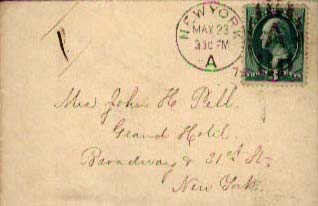 NEW YORK
MAY 23
330 PM
A
Mrs John H. Pell.
Grand Hotel.
Broadway & 31st St.
New York.